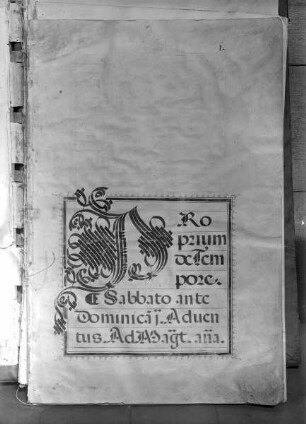 1.
PRo
prium
de Tem
pore.
¶ Sabbato ante
dominicā j. Aduen
tus. Ad Mag̃t. añā.